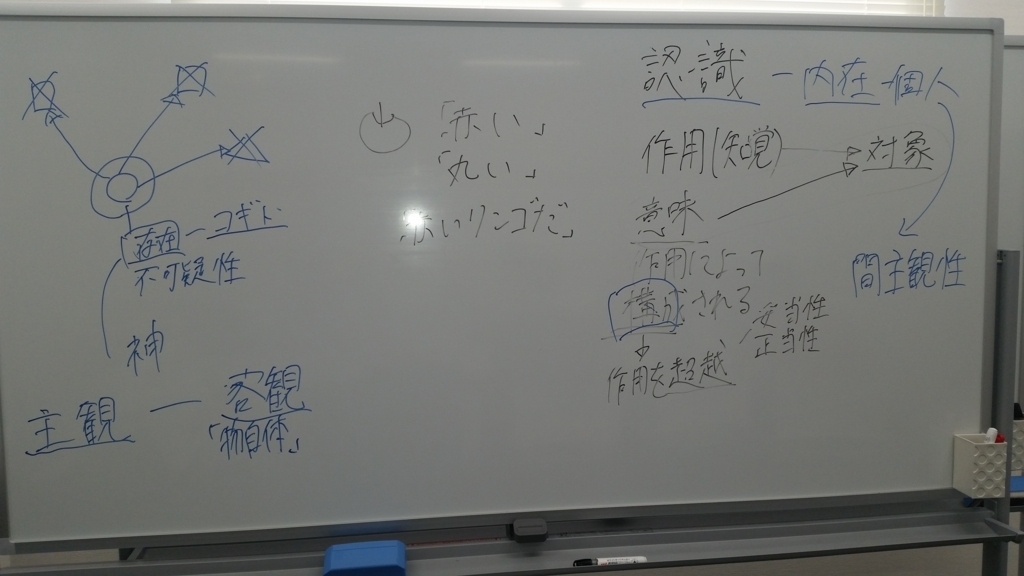 存在 ― コギト
不可疑性
神
主観 ― 客観
「物自体」
「赤い」
「丸い」
赤いリンゴだ」
認識 ― 内在 個人
作用(知覚) 対象
意味
作用によって
構成される
作用を超越
妥当性
正当性
間主観性